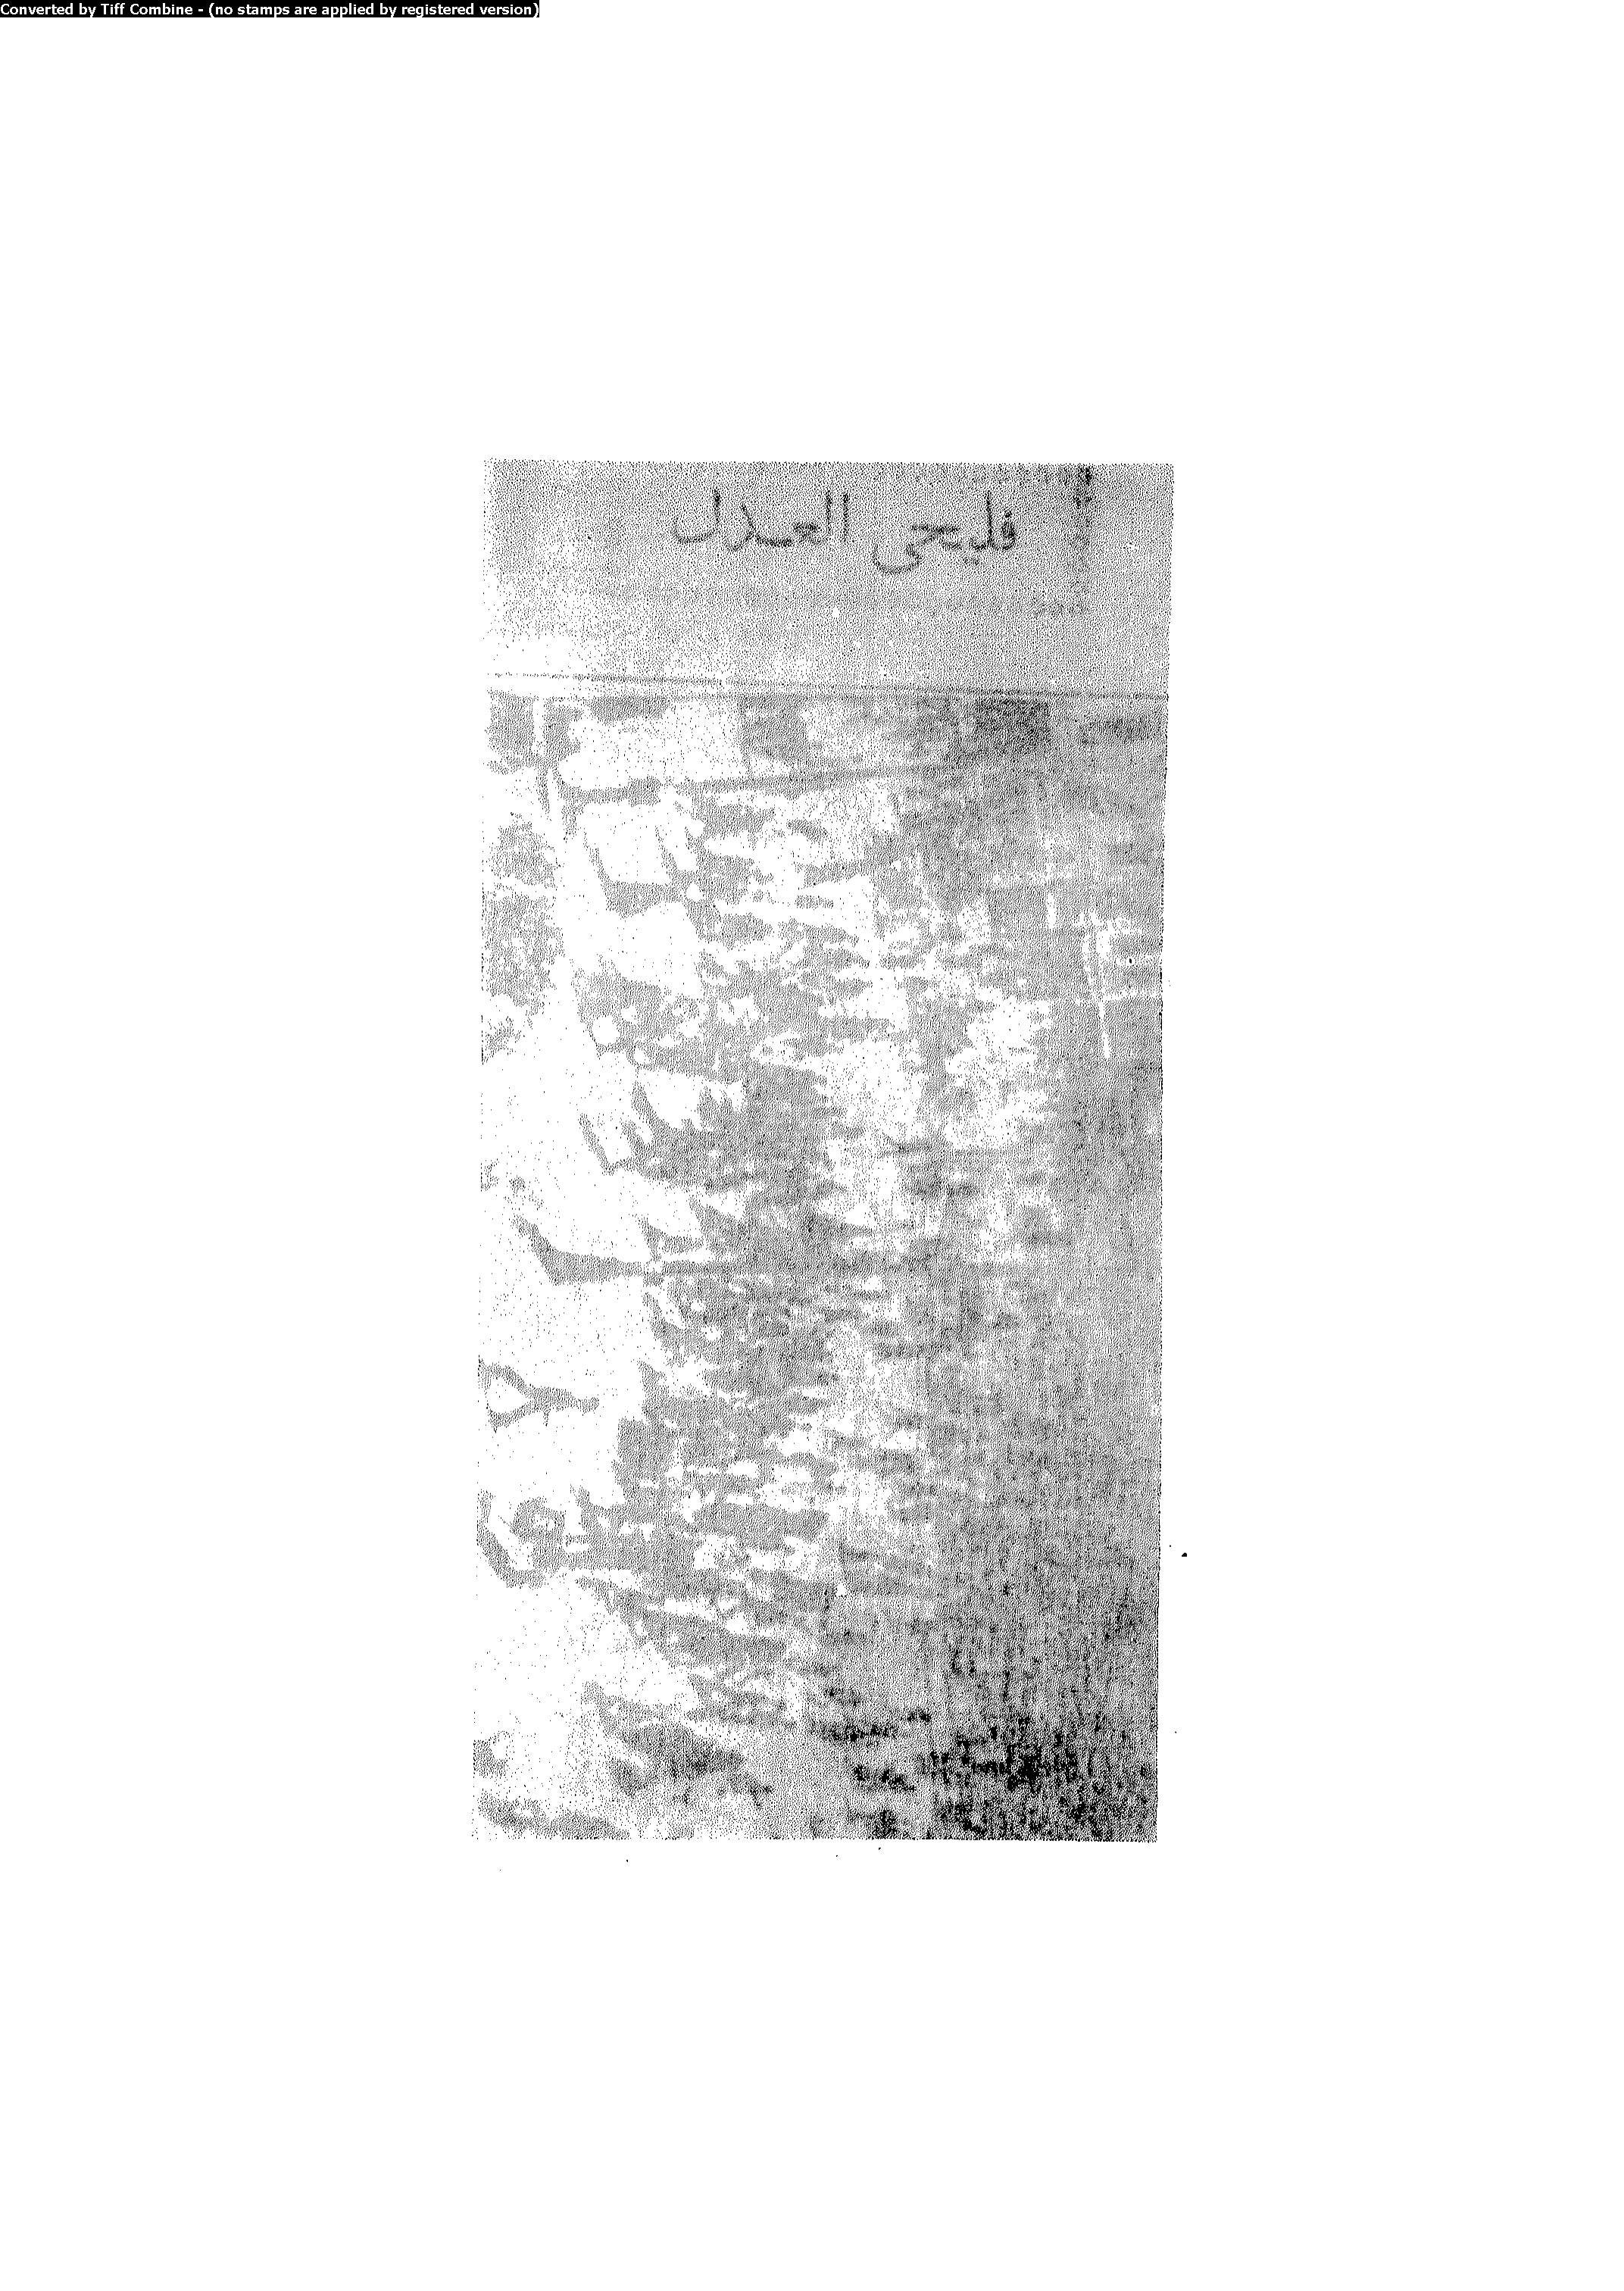 Converted by Tiff Combine - (no stamps are applied by registered version)
فليحى العدل